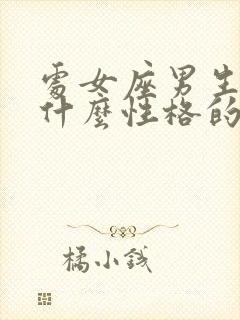 處女座男生
什麼性格的
橘小錢